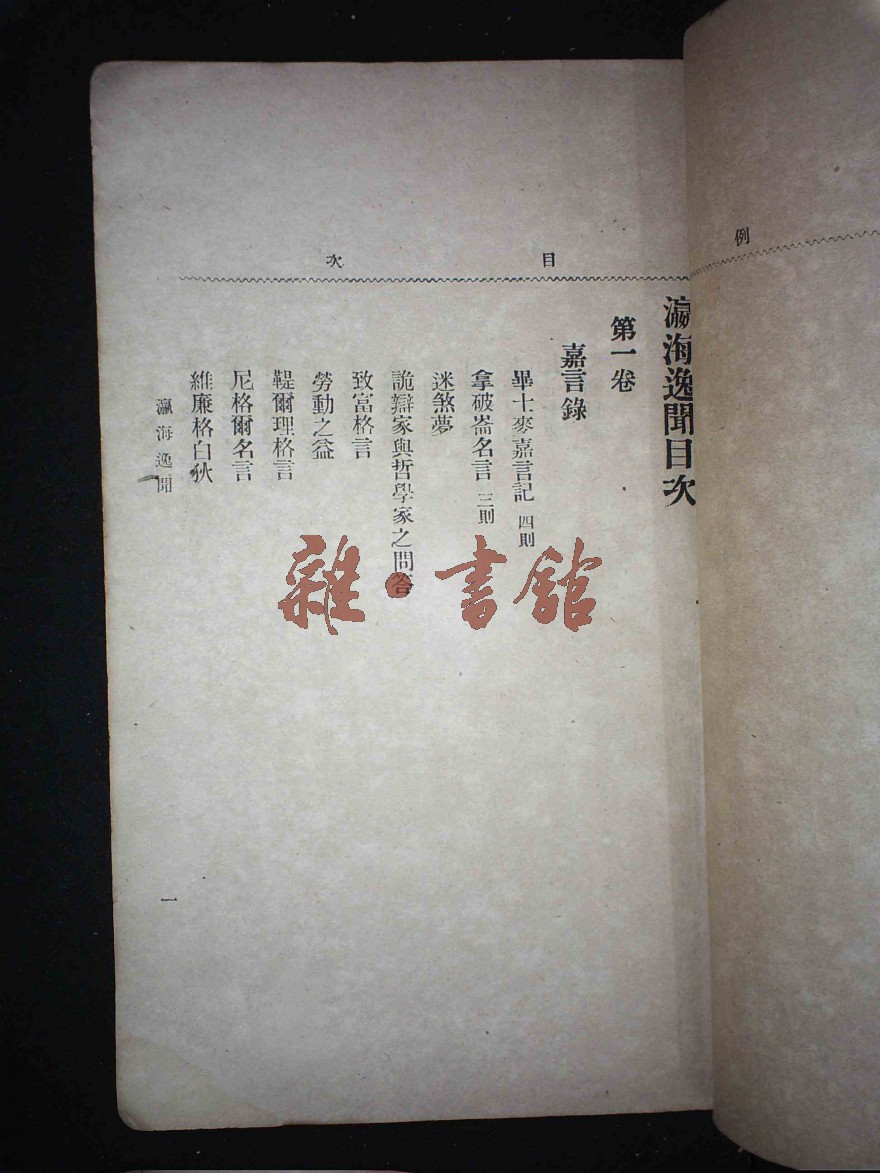 例
目次
瀛海逸聞目次
第一卷
嘉言錄
畢士麥嘉言記 四則
拿破崙名言 三則
迷煞夢
詭辯家與哲學家之問答
致富格言
勞動之益
鞮爾理格言
尼格爾名言
維廉格白狄
瀛海逸聞
一
雜·書館